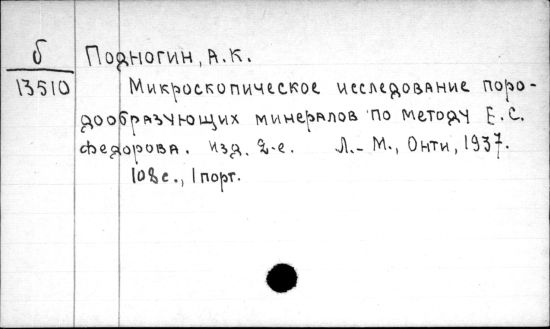 б Подногин, А.К.
13510 Микроскопическое исследование поро-
дообразующих минералов по методу Е.С.
Федорова. Изд. 2-е. Л.-М., Онти, 1937.
108с., 1 порт.